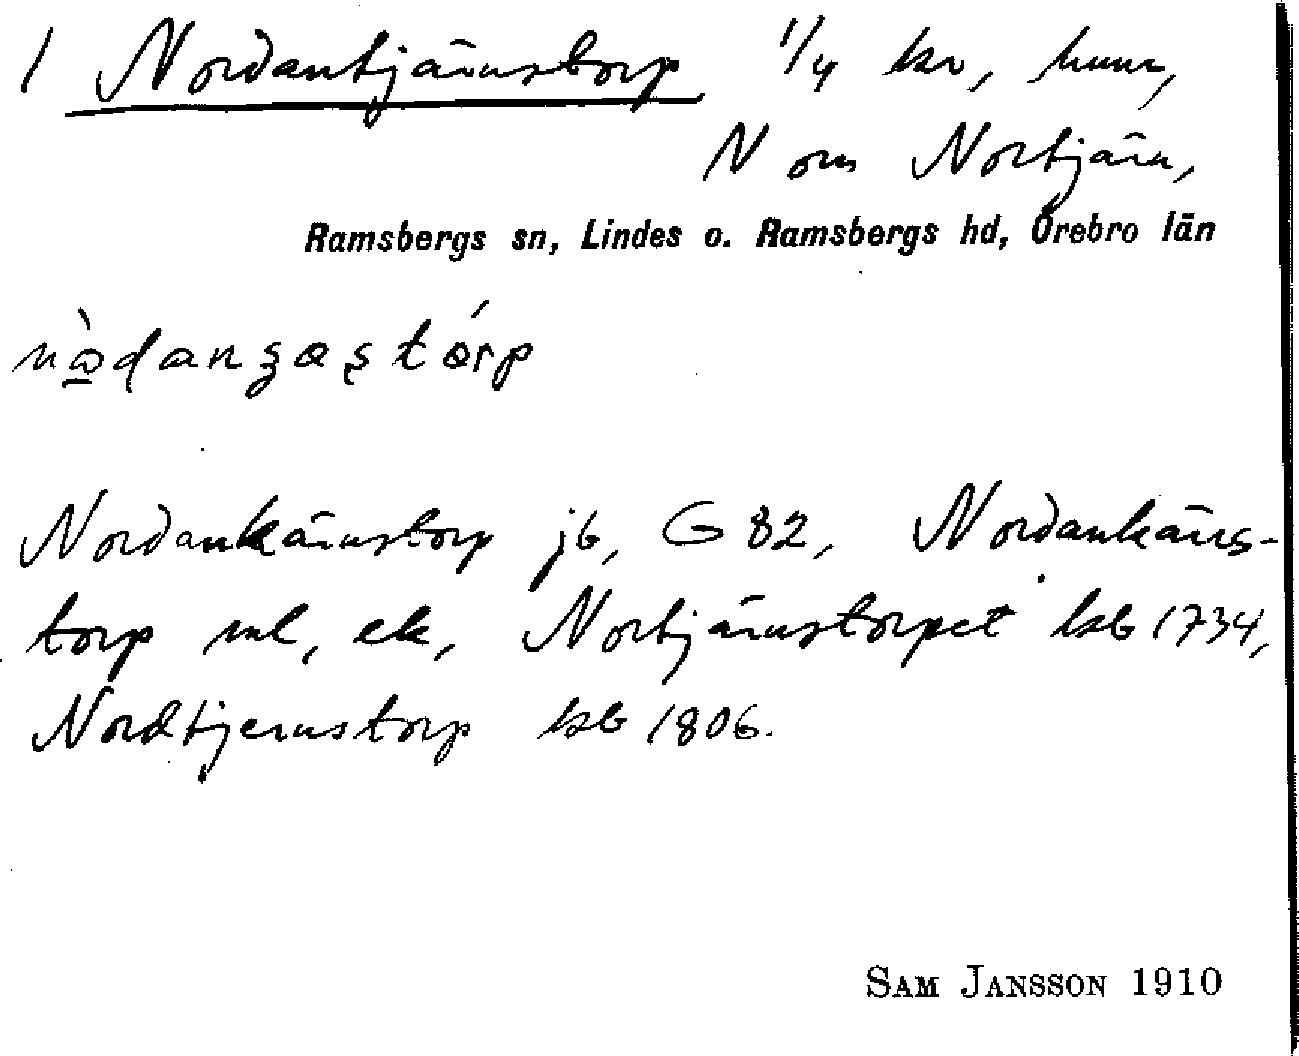 1 Nordantjärnstorp 1/4 kr, hmn,
N om Nortjärn,
Ramsbergs sn, Lindes o. Ramsbergs hd, Örebro län
Nordankärnstorp jb, G 82, Nordankärs-
torp ml, ek, Nortjärnstorpet kb 1734,
Nordtjernstorp kb 1806.
SAM JANSSON 1910